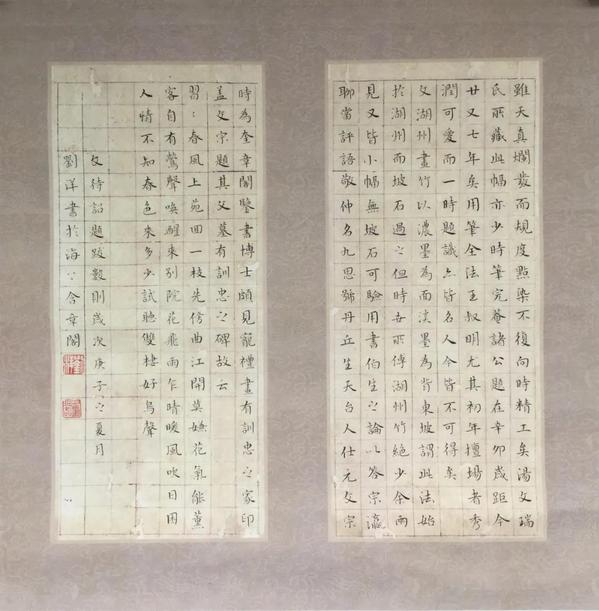 雖天真爛發而規度點染不復向時精工矣湯文瑞
氏所藏此幅亦少時筆完菴諸公題在辛卯歲距今
廿又七年矣用筆全法王叔明尤其初年擅場者秀
潤可愛而一時題識亦皆名人今皆不可得矣
文湖州畫竹以濃墨為面淡墨為背東坡謂此法始
於湖州而坡石過之但時吾所傳湖州竹絕少余兩
見又皆小幅無坡石可驗用書伯生之論以答宗瀛
聊當評語敬仲名九思號丹丘生天台人仕元文宗
時為奎章閣鑒書博士頗見寵禮畫有訓忠之家印
蓋文宗題其父墓有訓忠之碑故云
習〻春風上苑回一枝先傍曲江開莫嫌花氣能薰
客自有鶯聲喚醒來別院花飛雨乍晴暖風吹日困
人情不知春色來多少試聽雙棲好鳥聲
文待詔題跋數則歲次庚子之夏月
劉洋書於海上含章閣